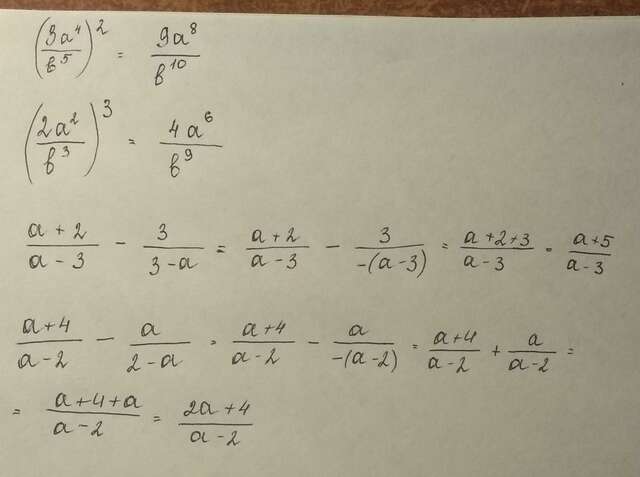 (3a⁴/b⁵)² = 9a⁸/b¹⁰
(2a²/b³)³ = 4a⁶/b⁹
(a+2)/(a-3) - 3/(3-a) = (a+2)/(a-3) - 3/(-(a-3)) = (a+2+3)/(a-3) = (a+5)/(a-3)
(a+4)/(a-2) - a/(2-a) = (a+4)/(a-2) - a/(-(a-2)) = (a+4)/(a-2) + a/(a-2) =
= (a+4+a)/(a-2) = (2a+4)/(a-2)